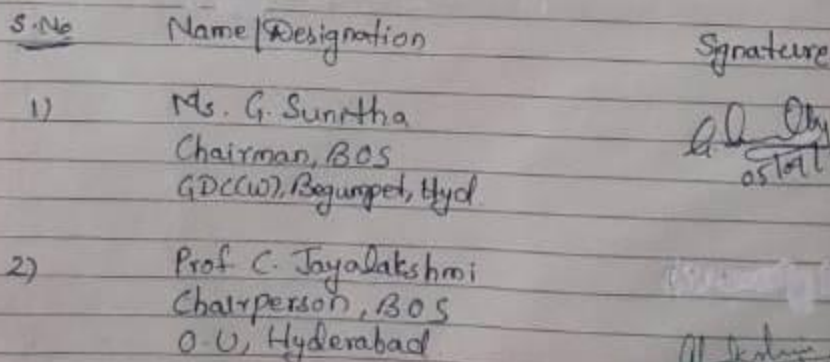 S.No Name/Designation Sgnateure
1) Ms. G. Sunitha
Chairman, BOS
GDC(W), Begumpet, Hyd.
2) Prof C. Jayalakshmi
Chairperson, BOS
O.U, Hyderabad